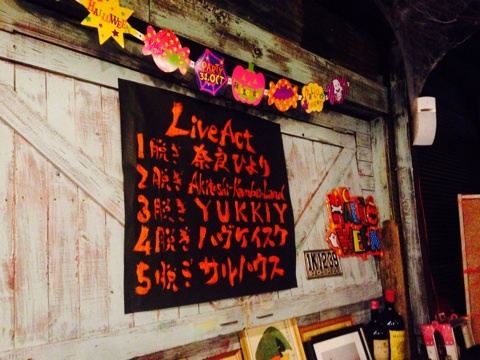 HALLOWEEN
PARTY
31.OCT
LiveAct
1脱ぎ 奈良ひより
2脱ぎ Akitoshi-Kambe-Land
3脱ぎ YUKKIY
4脱ぎ ハヴケイスケ
5脱ぎ サルハウス